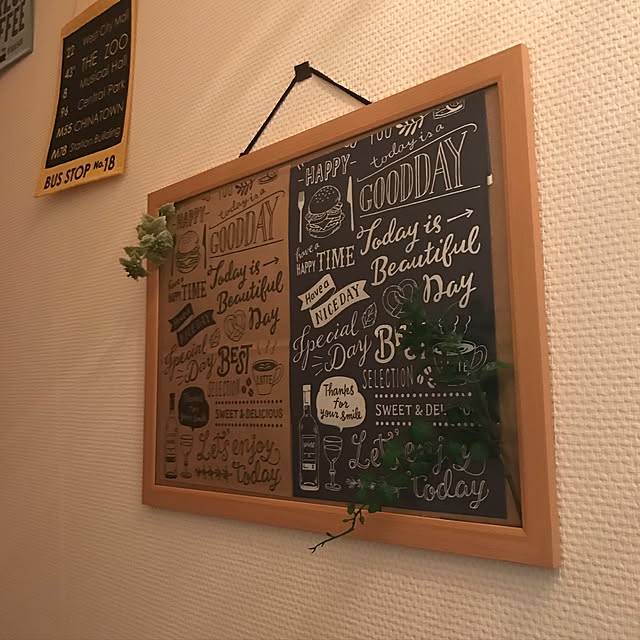 22 West City Mall
43' THE ZOO
8 Musical Hall
96 Central Park
M.55 CHINATOWN
M78 Station Building
BUS STOP No.18
HAPPY
today is a
GOODDAY
have a
HAPPY TIME
Today is
Beautiful
Day
Have a
NICE DAY
Special
Day
BEST
SELECTION
LATTE
SWEET & DELICIOUS
Let's enjoy
today
YOU
HAPPY
today is a
GOODDAY
have a
HAPPY TIME
Today is
Beautiful
Day
Have a
NICE DAY
Special
Day
SELECTION
Thanks
for
your smile
SWEET &
Let's enjoy
today